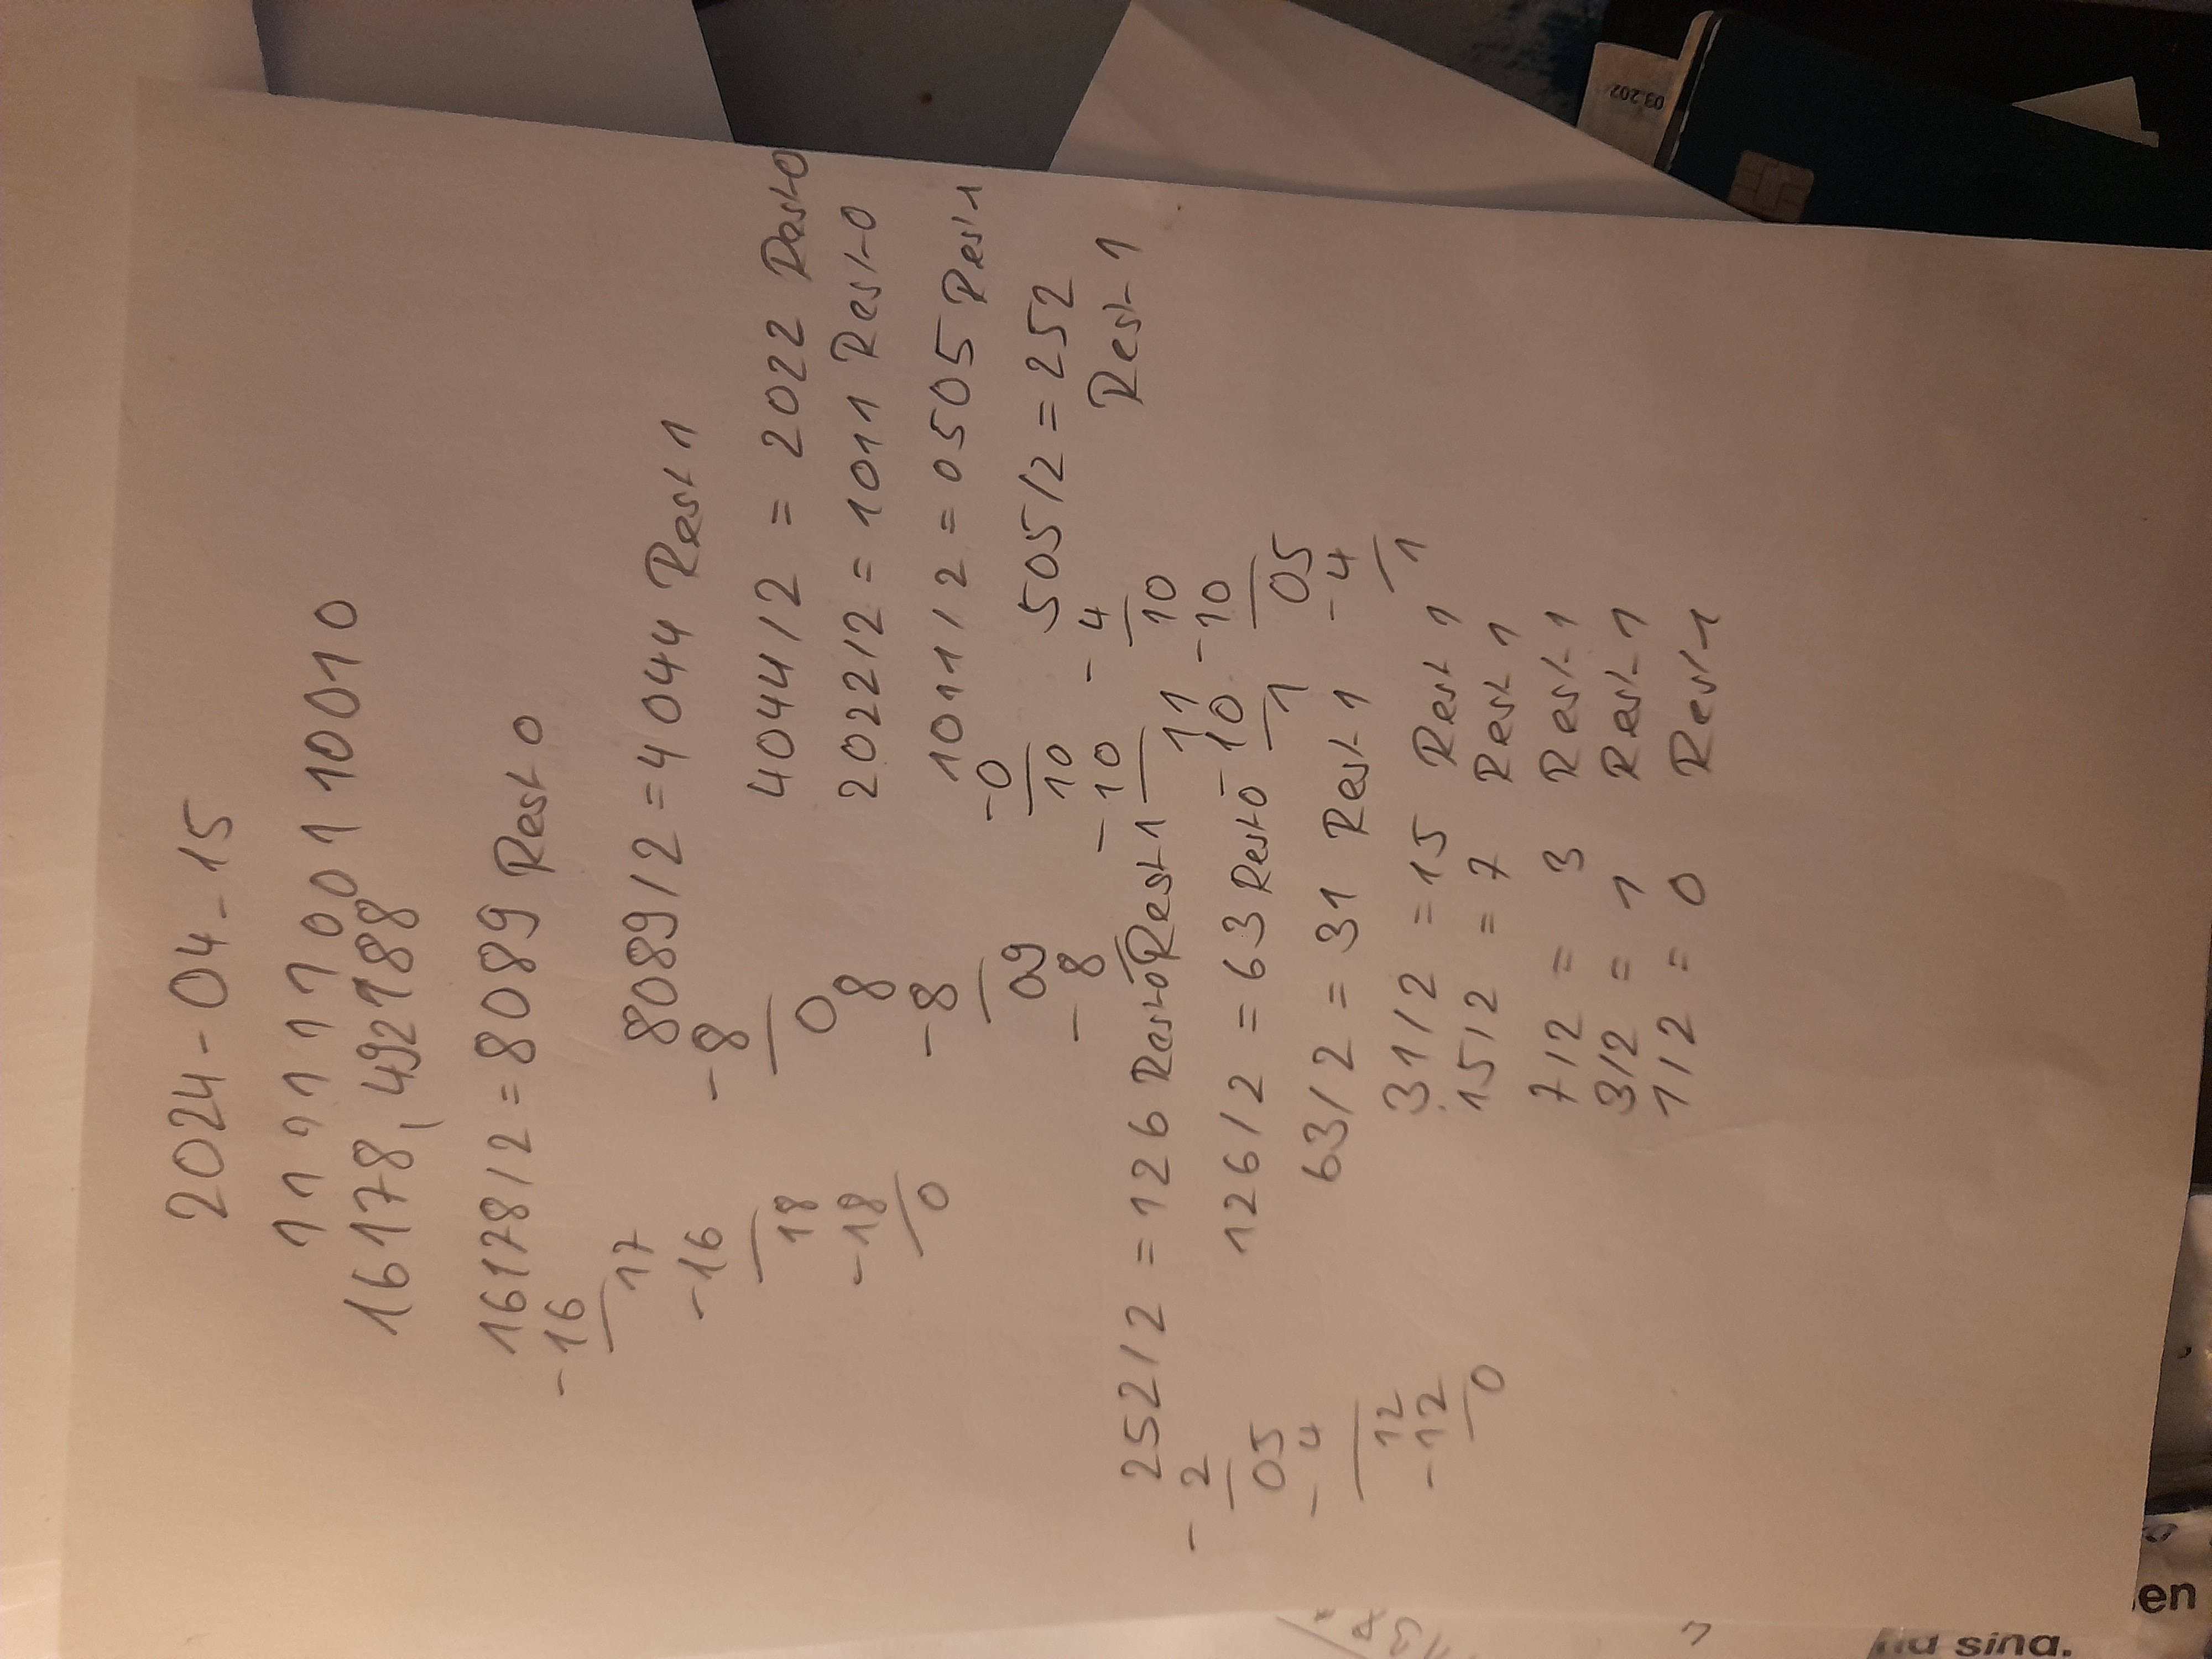 2024-04-15
11111100110010
16178,492188
16178/2=8089 Rest 0
-16
17
-16
18
-18
0
8089/2=4044 Rest 1
-8
0
8
-8
09
-8
1
4044/2 = 2022 Rest 0
2022/2= 1011 Rest 0
1011/2=0505 Rest 1
-0
10
-10
11
-10
1
505/2=252
Rest 1
-4
10
-10
05
-4
1
252/2=126 Rest 0
-2
05
-4
12
-12
0
126/2 = 63 Rest 0
63/2 = 31 Rest 1
31/2 =15 Rest 1
15/2 = 7 Rest 1
7/2 = 3 Rest 1
3/2 = 1 Rest 1
1/2 = 0 Rest 1
03.202
en
sind.